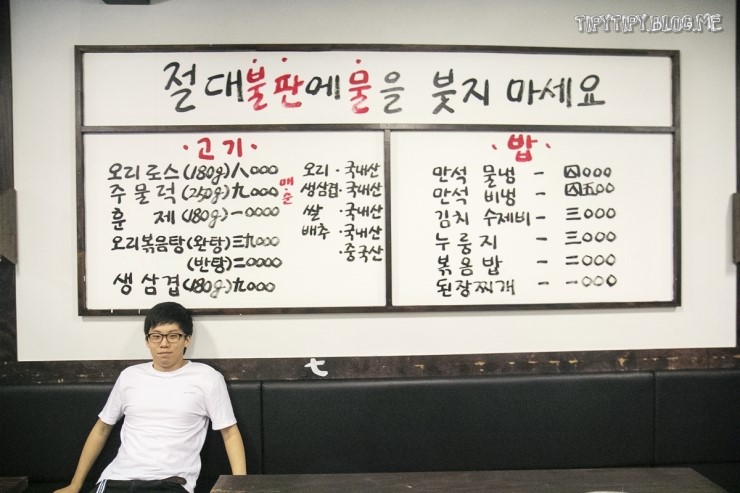 TIPYTIPY.BLOG.ME
절대불판에물을 붓지 마세요
·고기·
오리로스(180g)八000
주물럭(250g)九000
훈제(180g)一0000
오리볶음탕(완탕)三九000
(반탕)二0000
생삼겹(180g)九000
매운
오리·국내산
생삼겹·국내산
쌀·국내산
배추·국내산
·중국산
·밥·
만석 물냉 - 四000
만석 비냉 - 四五00
김치 수제비 - 三000
누룽지 - 三000
볶음밥 - 二000
된장찌개 - 一000
七